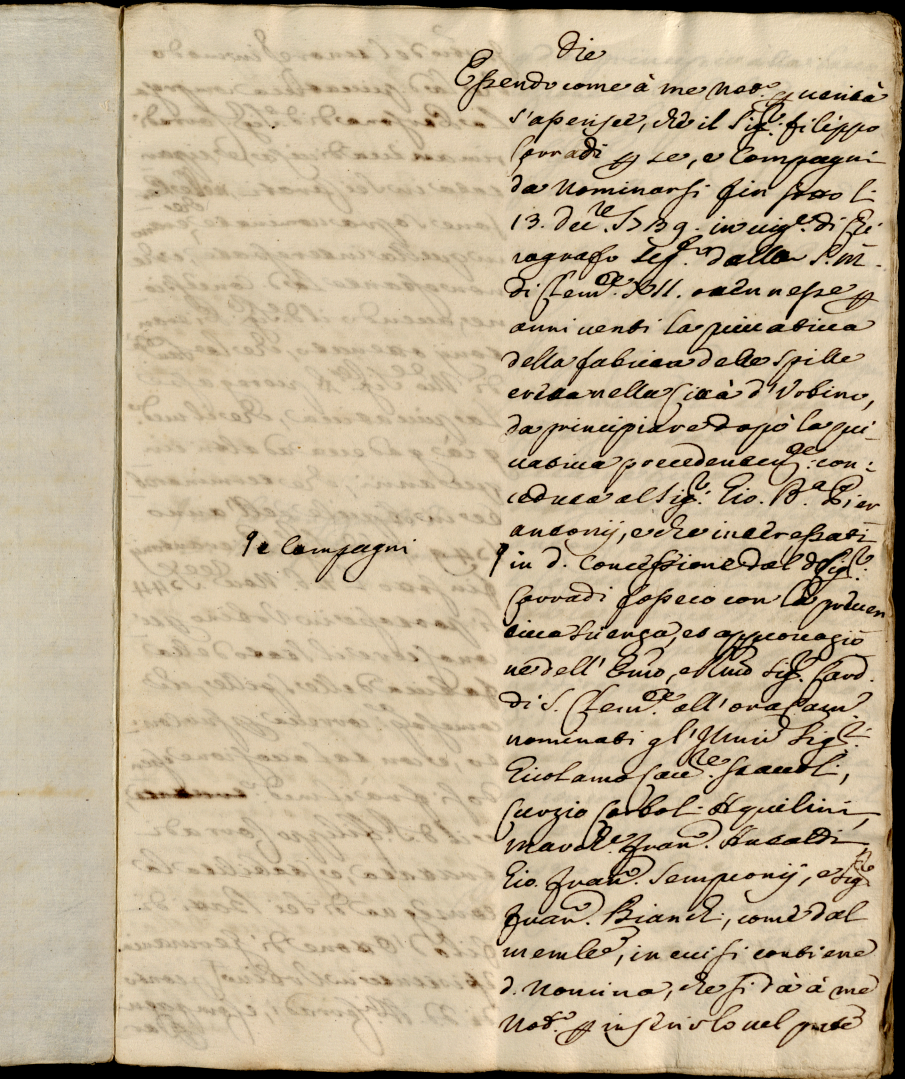 Die
Essendo come à me Not.º p verità
s'aspenset, che il Sig.r Filippo
Corradi p se, e Compagni
da Nominarsi fin sotto li
13. Dec.re 1739. in vig.e di Chi
rografo Seg.to dalla S. M.
di Clem.te XII. ottenesse p
anni venti la privativa
della fabrica delle Spille
eretta nella Città d'Urbino,
da principiare dopò la pri
vativa precedentem.te con:
ceduta al Sig.r Gio. B.a Pier
antonij, e che interessati
in d. Concessione dal d. Sig.r
Corradi fossero con la preven
tiva licenza, et approvazio
ne dell' Emo, e Rmo Sig.r Card.
di S. Clem.te all'ora Cam.
nominati gl' Illmi Sig.ri
Girolamo Cav.re Staccoli,
Curzio Corboli Aquilini,
March.e Fran.co Antaldi
Gio. Fran.co Sempronij, e Sig.r
Fran.co Bianchi, come dal
memle, in cui si contiene
d. Nomina, che si dà à me
Not.º p inserirlo nel prñte
9 e Compagni